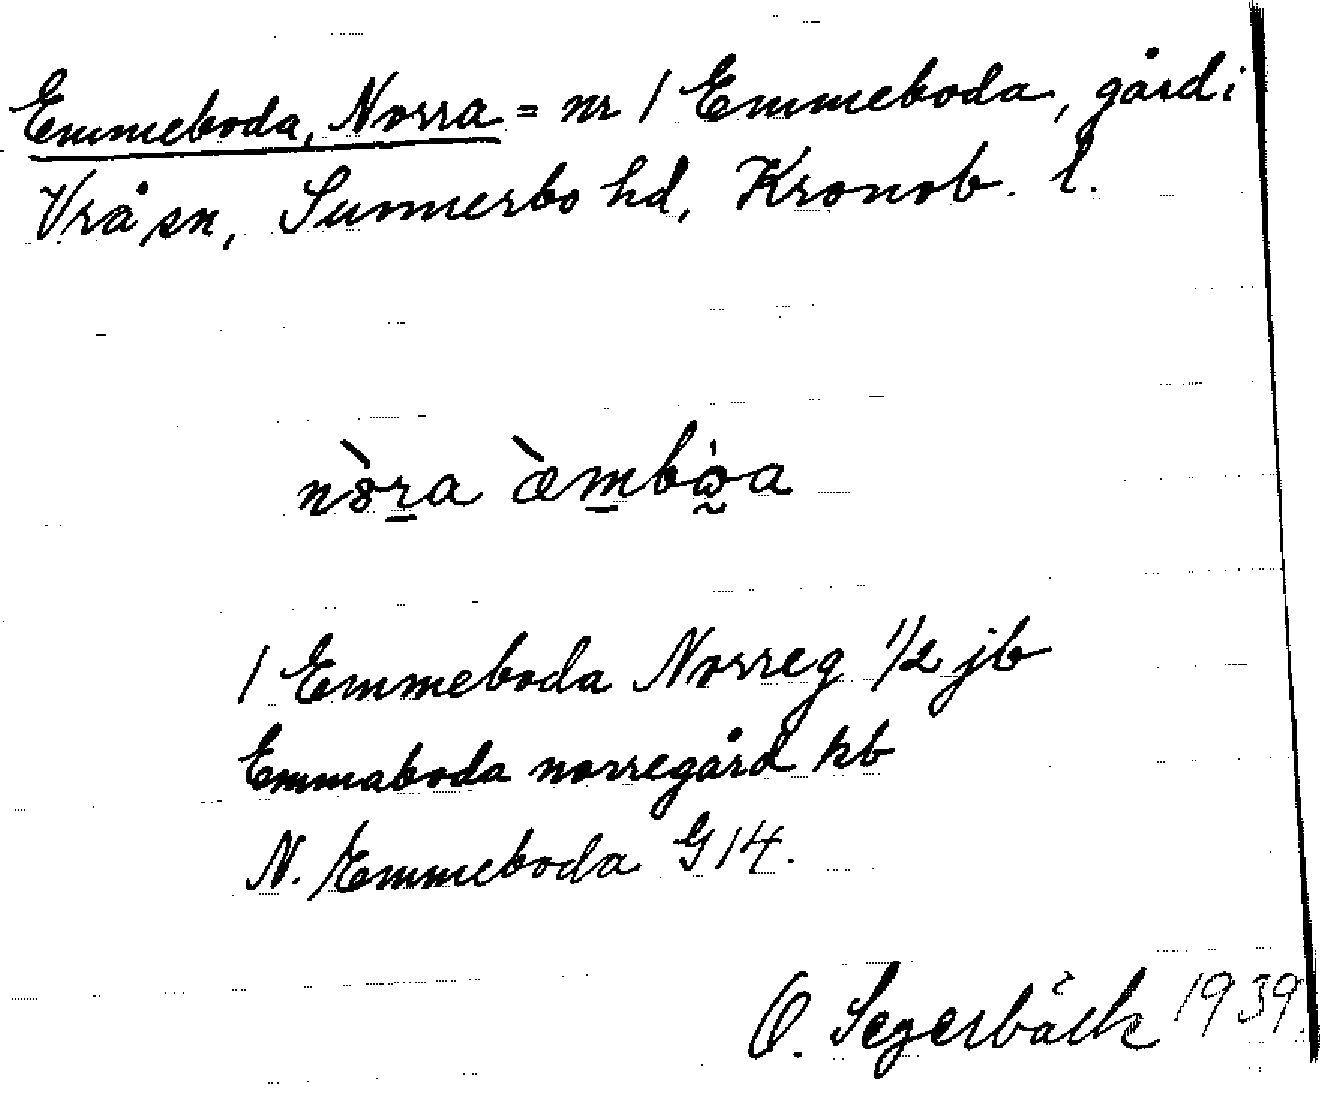 Emmeboda, Norra = nr 1 Emmeboda, gård i
Vrå sn, Sunnerbo hd, Kronob. l.
1 Emmeboda Norreg 1/2 jb
Emmaboda norregård kb
N. Emmeboda G 14.
O. Segerbäck 1939